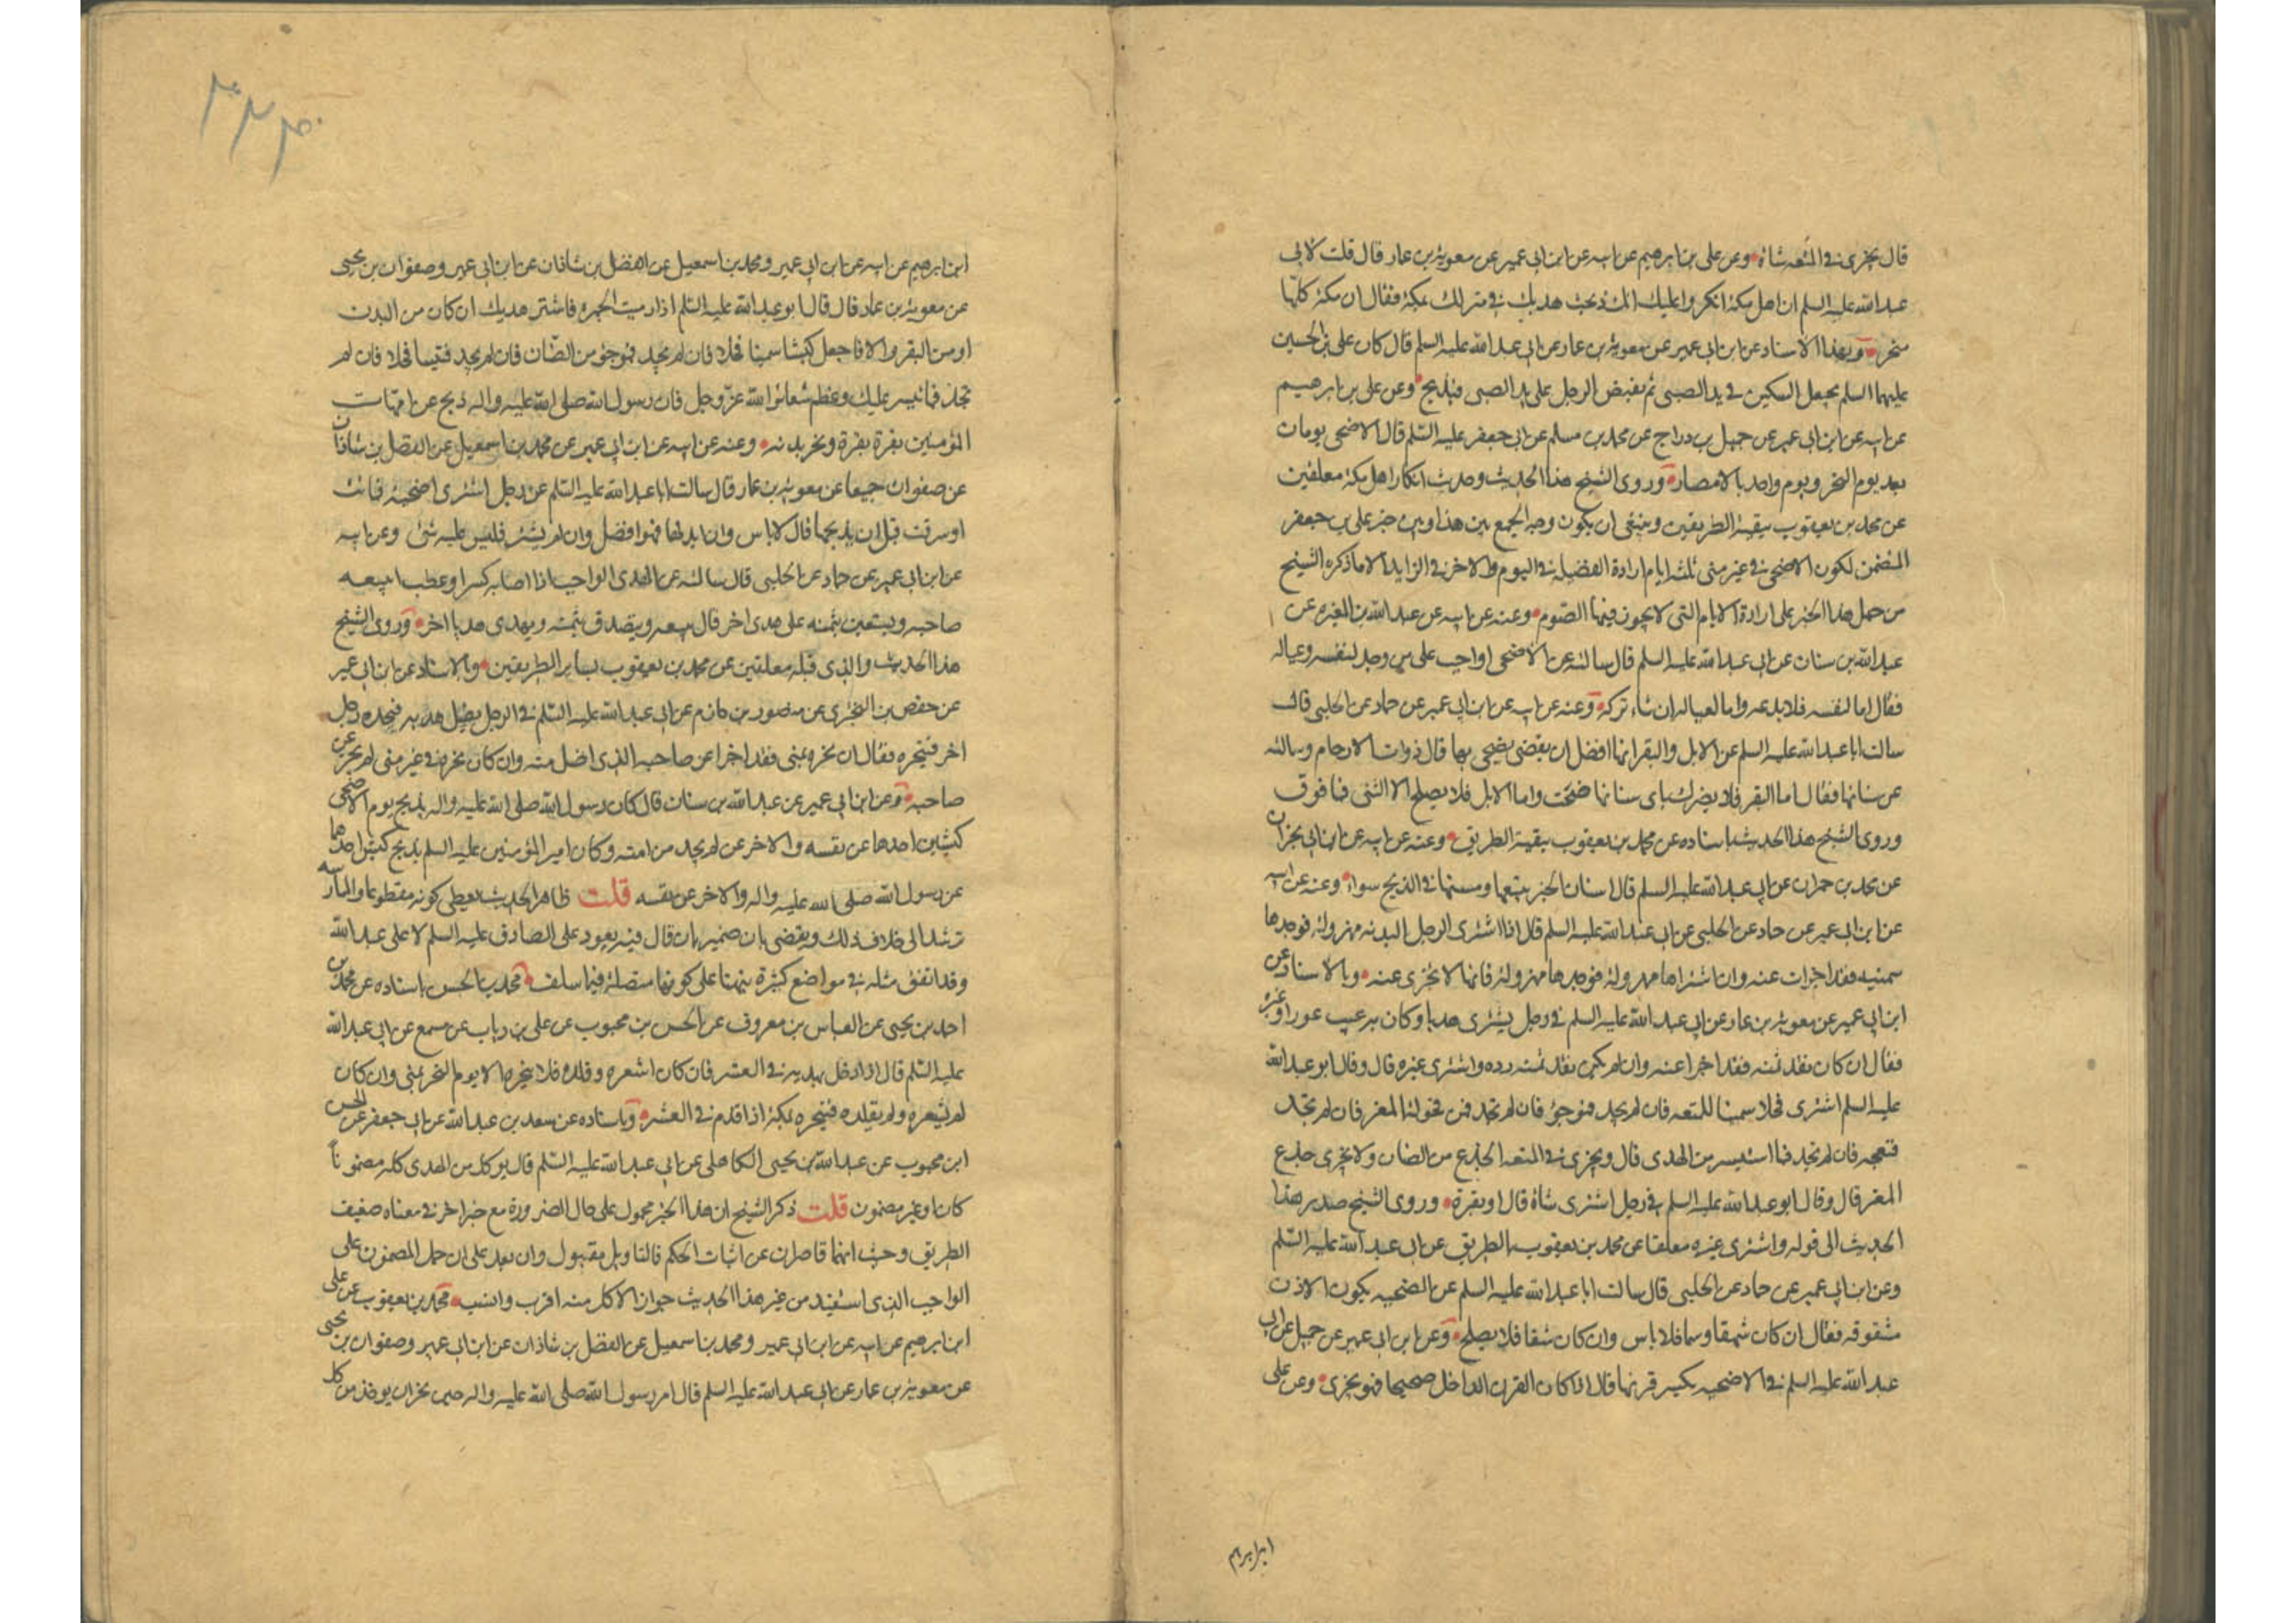 قال يجزى في المتعه شاة وعن على بن ابرهيم عن ابيه عن ابن ابى عمير عن معوية بن عمار قال قلت لابى
عبد الله عليه السلم ان اهل مكة انكروا عليك انك ذبحت هديك في منزلك بمكة فقال ان مكة كلها
منحر وبهذا الاسناد عن ابن ابى عمير عن معوية بن عمار عن ابى عبد الله عليه السلم قال كان على بن الحسين
عليهما السلم يجعل السكين في يد الصبى ثم يقبض الرجل على يد الصبى فيذبح وعن على بن ابرهيم
عن ابيه عن ابن ابى عمير عن جميل بن دراج عن محمد بن مسلم عن ابى جعفر عليه السلم قال الاضحى يومان
بعد يوم النحر ويوم واحد بالامصار وروى الشيخ هذا الحديث وحديث انكار اهل مكة معلقين
عن محمد بن يعقوب ببقية الطريقين وينبغى ان يكون وجه الجمع بين هذا وبين خبر على بن جعفر
المتضمن لكون الاضحى في غير منى ثلثة ايام ارادة الفضيلة في اليوم والاخر في الزايد لا ما ذكره الشيخ
من حمل هذا الخبر على ارادة الايام التى لا يجوز فيها الصوم وعنه عن ابيه عن عبد الله بن المغيره عن
عبد الله بن سنان عن ابى عبد الله عليه السلم قال سالته عن الاضحى اواجب على من وجد لنفسه وعياله
فقال اما لنفسه فلا يدعه واما لعياله ان شاء تركه وعنه عن ابيه عن ابن ابى عمير عن حماد عن الحلبى قال
سالت ابا عبد الله عليه السلم عن الابل والبقر ايهما افضل ان يضحى بها قال ذوات الارحام وسالته
عن سنانها فقال اما البقر فلا يضرك باى سنانها ضحيت واما الابل فلا يصلح الا الثنى فما فوق
وروى الشيخ هذا الحديث باسناده عن محمد بن يعقوب ببقية الطريق وعنه عن ابيه عن ابن ابى نجران
عن محمد بن حمران عن ابى عبد الله عليه السلم قال اسنان البقر تبيعها ومسنها في الذبح سواء وعنه عن ابيه
عن ابن ابى عمير عن حماد عن الحلبى عن ابى عبد الله عليه السلم قال اذا اشترى الرجل البدنه مهزولة فوجدها
سمينه فقد اجزات عنه وان اشتراها مهزولة فوجدها مهزولة فانها لا تجزى عنه وبالاسناد عن
ابن ابى عمير عن معوية بن عمار عن ابى عبد الله عليه السلم في رجل يشترى هديا وكان به عيب عور او غيره
فقال ان كان نقد ثمنه فقد اجزا عنه وان لم يكن نقد ثمنه رده واشترى غيره قال وقال ابو عبد الله
عليه السلم اشترى فحلا سمينا للمتعه فان لم تجد فموجؤ فان لم تجد فمن فحولة المعز فان لم تجد
فنعجه فان لم تجد فما استيسر من الهدى قال ويجزى في المتعه الجذع من الضان ولا يجزى جذع
المعز قال وقال ابو عبد الله عليه السلم في رجل اشترى شاة قال او بقرة وروى الشيخ صدر هذا
الحديث الى قوله واشترى غيره معلقا عن محمد بن يعقوب بالطريق عن ابى عبد الله عليه السلم
وعن ابن ابى عمير عن حماد عن الحلبى قال سالت ابا عبد الله عليه السلم عن الضحيه يكون الاذن
مشقوقه فقال ان كان شقها وسما فلا باس وان كان شقا فلا يصلح وعن ابن ابى عمير عن جميل عن ابى
عبد الله عليه السلم في الاضحيه يكسر قرنها قال اذا كان القرن الداخل صحيحا فهو يجزى وعن على
ابراهيم
٣٣٤
ابن ابرهيم عن ابيه عن ابن ابى عمير ومحمد بن اسمعيل عن الفضل بن شاذان عن ابن ابى عمير وصفوان بن يحيى
عن معوية بن عمار قال قال ابو عبد الله عليه السلم اذا رميت الجمره فاشتر هديك ان كان من البدن
او من البقر والا فاجعل كبشا سمينا فحلا فان لم تجد فموجؤ من الضان فان لم تجد فتيسا فحلا فان لم
تجد فما تيسر عليك وعظم شعائر الله عز وجل فان رسول الله صلى الله عليه واله ذبح عن امهات
المؤمنين بقرة بقرة ونحر بدنه وعنه عن ابيه عن ابن ابى عمير عن محمد بن اسمعيل عن الفضل بن شاذان
عن صفوان جميعا عن معوية بن عمار قال سالت ابا عبد الله عليه السلم عن رجل اشترى اضحية فماتت
او سرقت قبل ان يذبحها قال لا باس وان ابدلها فهو افضل وان لم يشتر فليس عليه شئ وعن ابيه
عن ابن ابى عمير عن حماد عن الحلبى قال سالته عن الهدى الواجب اذا اصابه كسر او عطب ايبيعه
صاحبه ويستعين بثمنه على هدى اخر قال يبيعه ويتصدق بثمنه ويهدى هديا اخر وروى الشيخ
هذا الحديث والذى قبله معلقين عن محمد بن يعقوب بساير الطريقين وبالاسناد عن ابن ابى عمير
عن حفص بن البخترى عن منصور بن حازم عن ابى عبد الله عليه السلم في الرجل يضل هديه فيجده رجل
اخر فينحره فقال ان نحره بمنى فقد اجزا عن صاحبه الذى اضل منه وان كان نحره في غير منى لم يجز عن
صاحبه وعن ابن ابى عمير عن عبد الله بن سنان قال كان رسول الله صلى الله عليه واله يذبح يوم الاضحى
كبشين احدها عن نفسه والاخر عن لم يجد من امته وكان امير المؤمنين عليه السلم يذبح كبشين احدهما
عن رسول الله صلى الله عليه واله والاخر عن نفسه قلت ظاهر الحديث يعطى كونه مقطوعا والممارسه
ترشد الى خلاف ذلك ويقضى بان ضمير بان قال فيه يعود على الصادق عليه السلم لا على عبد الله
وقد اتفق مثله في مواضع كثيرة نبهنا على كونها متصلة فيما سلف محمد بن الحسن باسناده عن محمد بن
احمد بن يحيى عن العباس بن معروف عن الحسن بن محبوب عن على بن رياب عن مسمع عن ابى عبد الله
عليه السلم قال اذا دخل بهديه في العشر فان كان اشعره وقلده فلا ينحره الا يوم النحر بمنى وان كان
لم يشعره ولم يقلده فينحره بمكة اذا قدم في العشر وباسناده عن سعد بن عبد الله عن ابى جعفر عن الحسن
ابن محبوب عن عبد الله بن يحيى الكاهلى عن ابى عبد الله عليه السلم قال يوكل من الهدى كله مضمونا
كان او غير مضمون قلت ذكر الشيخ ان هذا الخبر محمول على حال الضرورة مع خبر اخر في معناه ضعيف
الطريق وحيث انهما قاصران عن اثبات الحكم فالتاويل مقبول وان بعد على ان حمل المضمون على
الواجب الذى استفيد من غير هذا الحديث جواز الاكل منه اقرب وانسب محمد بن يعقوب عن على
ابن ابرهيم عن ابيه عن ابن ابى عمير ومحمد بن اسمعيل عن الفضل بن شاذان عن ابن ابى عمير وصفوان بن يحيى
عن معوية بن عمار عن ابى عبد الله عليه السلم قال امر رسول الله صلى الله عليه واله حين نحر ان يوخذ من كل